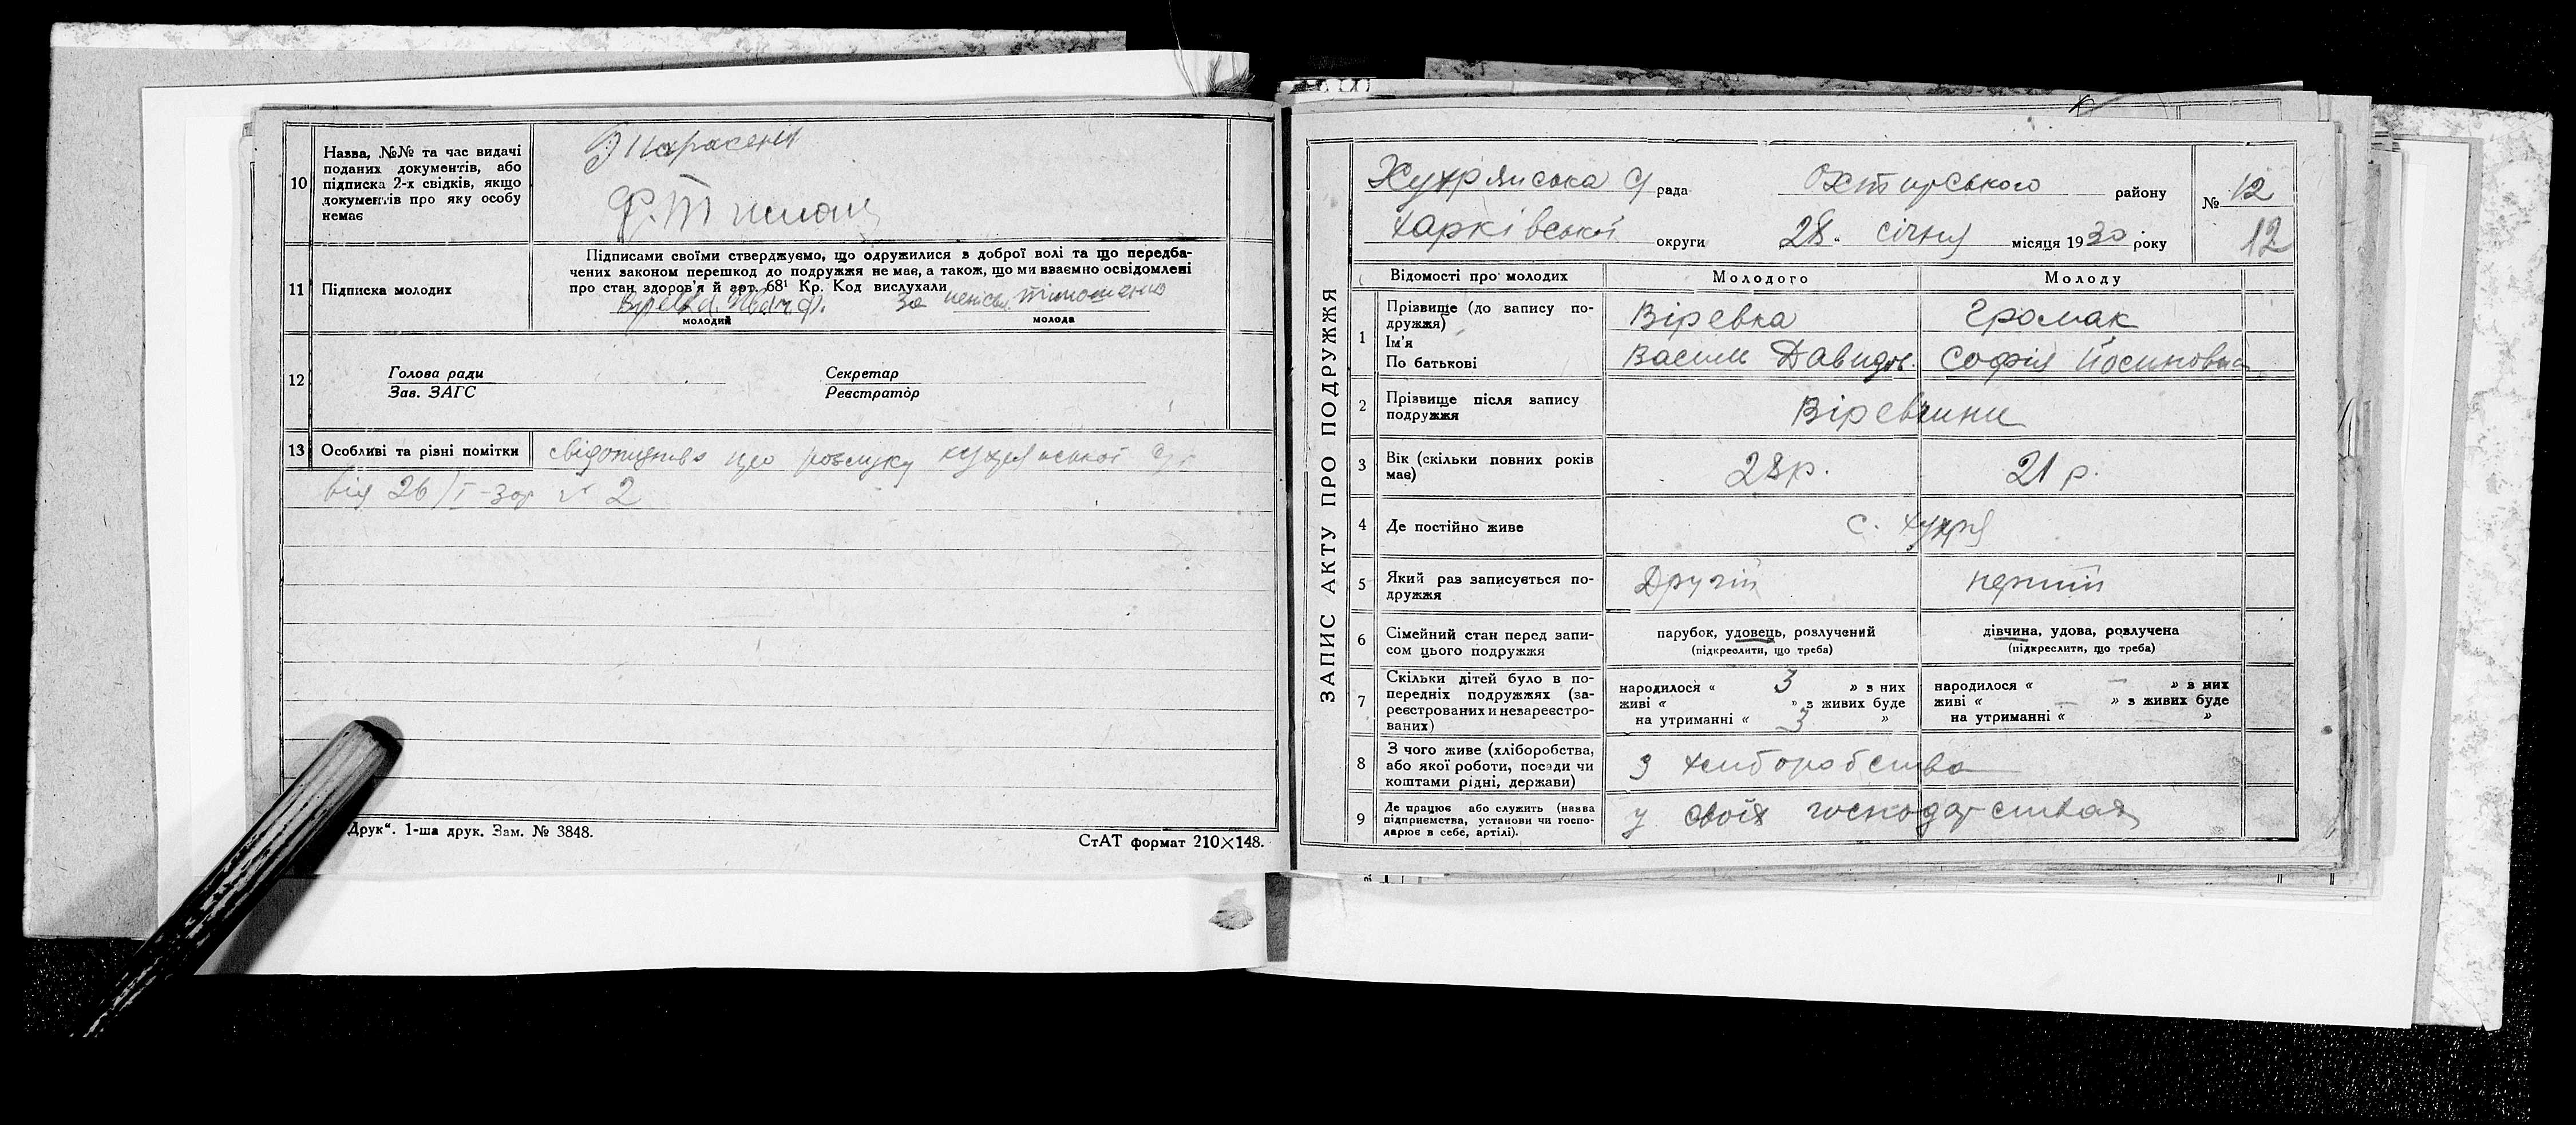 10 Назва, №№ та час видачі
поданих документів, або
підписка 2-х свідків, якщо
документів про яку особу
немає
11 Підписка молодих
Підписами своїми стверджуємо, що одружилися з доброї волі та що передба-
чених законом перешкод до подружжя не має, а також, що ми взаємно освідомлені
про стан здоров'я й арт. 68¹ Кр. Код вислухали
За Тимошенко
молодий молода
12 Голова ради Секретар
Зав. ЗАГС Реєстратор
13 Особливі та різні помітки про розлуку
від 26/I-30р № 2
Друк“. 1-ша друк. Зам. № 3848.
СтАТ формат 210×148.
ЗАПИС АКТУ ПРО ПОДРУЖЖЯ
Хухрянська с/ рада Охтирського району № 12
Харківської округи 28 січня місяця 1930 року 12
Відомості про молодих Молодого Молоду
1 Прізвище (до запису по-
дружжя) Віревка Громак
Ім'я
По батькові Василь Давидов. Софія Йосиповна
2 Прізвище після запису
подружжя Віревчини
3 Вік (скільки повних років
має) 28р. 21 р.
4 Де постійно живе с. Хухря
5 Який раз записується по-
дружжя Другій перший
6 Сімейний стан перед запи-
сом цього подружжя
парубок, удовець, розлучений
(підкреслити, що треба)
дівчина, удова, розлучена
(підкреслити, що треба)
7 Скільки дітей було в по-
передніх подружжях (за-
реєстрованих и незареєстро-
ваних)
народилося « 3 » з них
живі « » з живих буде
на утриманні « 3 »
народилося « — » з них
живі « — » з живих буде
на утриманні « »
8 З чого живе (хліборобства,
або якої роботи, посади чи
коштами рідні, держави)
З хліборобства
9 Де працює або служить (назва
підприємства, установи чи госпо-
дарює в себе, артілі).
у своїх господарствах